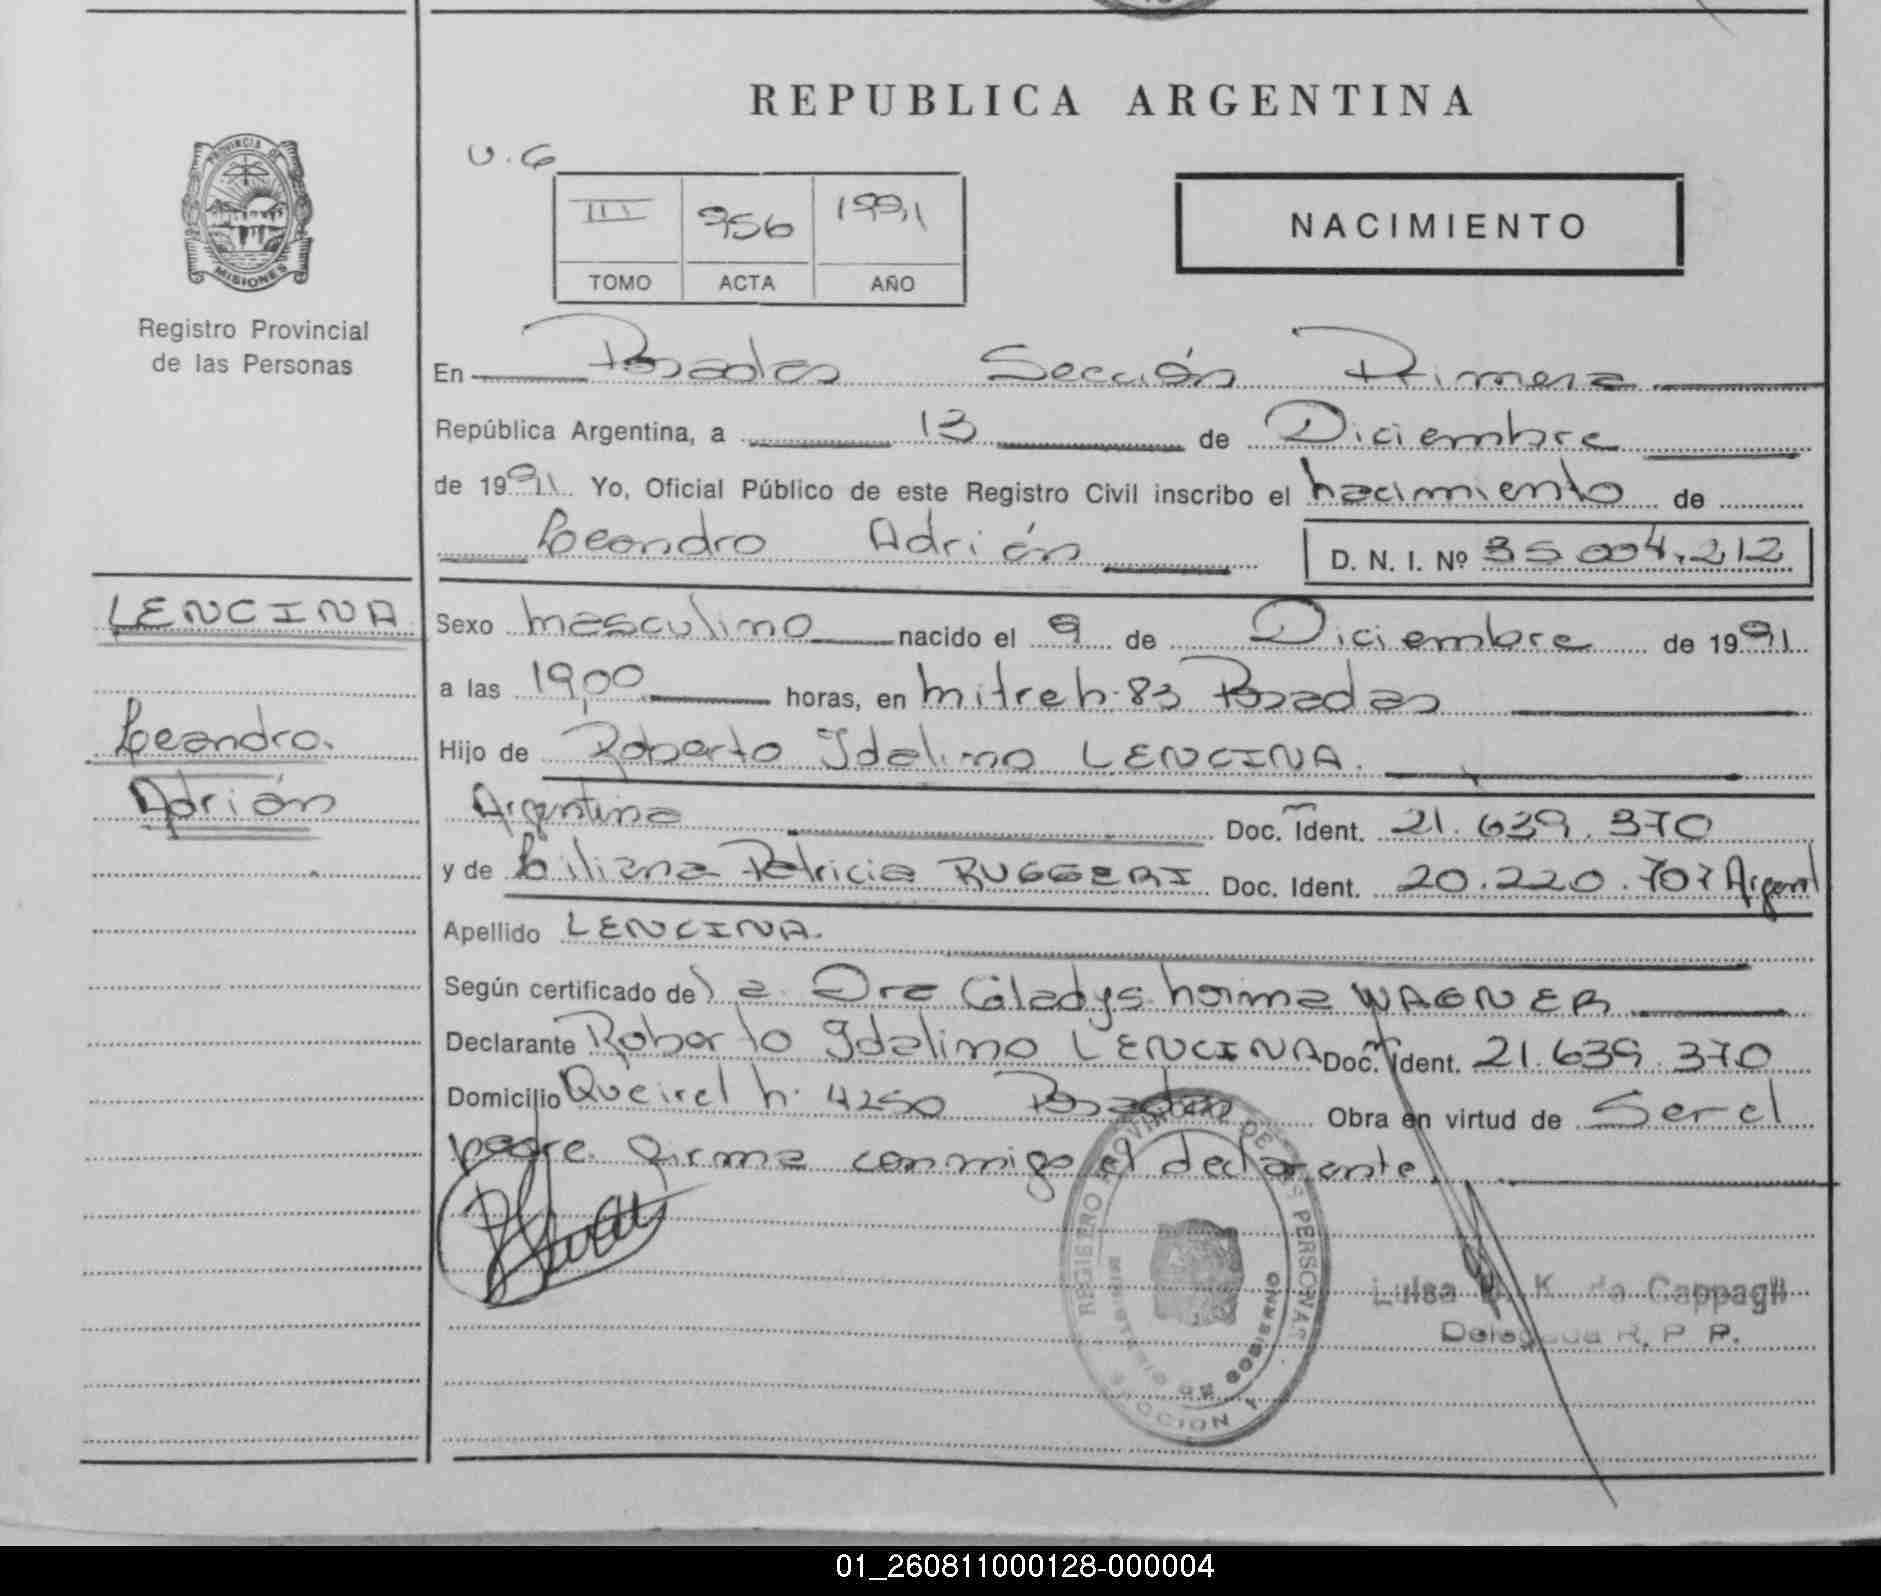 REPUBLICA ARGENTINA
PROVINCIA DE
MISIONES
Registro Provincial
de las Personas
U.G
III 756 1991
TOMO ACTA AÑO
NACIMIENTO
En Posadas Sección Primera
República Argentina, a 13 de Diciembre
de 1991 Yo, Oficial Público de este Registro Civil inscribo el nacimiento de
Leandro Adrián D. N. I. Nº 35.004.212
LENCINA
Leandro.
Adrián
Sexo masculino nacido el 9 de Diciembre de 1991
a las 19,00 horas, en Mitre n. 83 Posadas
Hijo de Roberto Idalino LENCINA.
Argentina Doc. Ident. 21.639.370
y de Liliana Patricia RUGGERI Doc. Ident. 20.220.707 Argent
Apellido LENCINA.
Según certificado de la Dra Gladys Norma WAGNER
Declarante Roberto Idalino LENCINA Doc. Ident. 21.639.370
Domicilio Queirel n. 4250 Posadas Obra en virtud de Ser el
padre. Firma conmigo el declarante.
REGISTRO PROVINCIAL DE LAS PERSONAS
MINISTERIO DE GOBIERNO
Luisa K. de Cappagli
Delegada R. P. P.
01_260811000128-000004